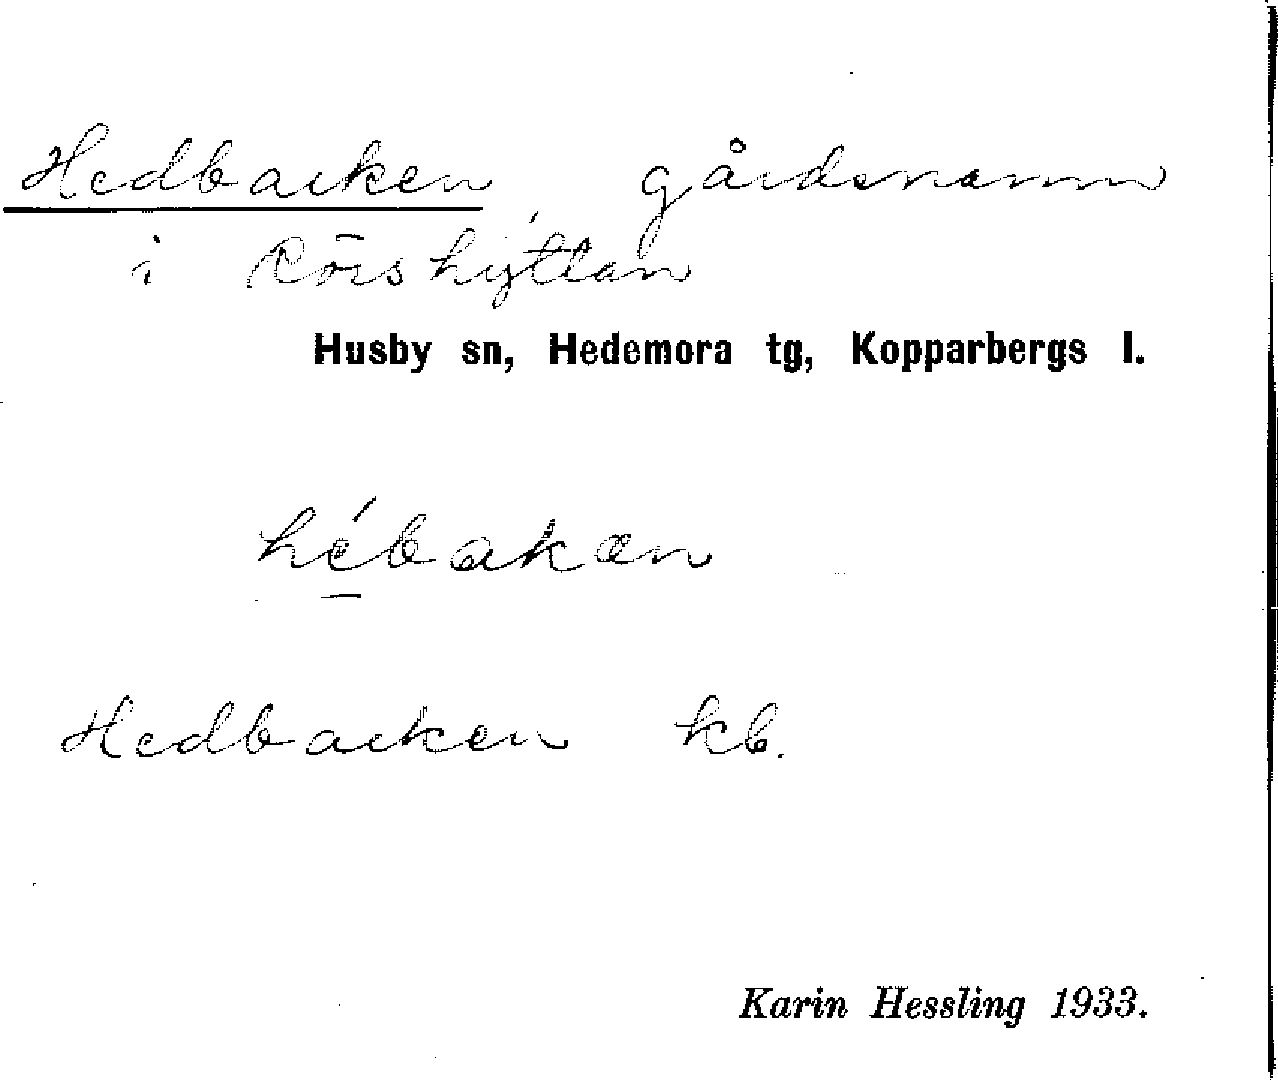 Hedbacken gårdsnamn
i Rörshyttan
Husby sn, Hedemora tg, Kopparbergs l.
hébakæn
Hedbacken kb.
Karin Hessling 1933.